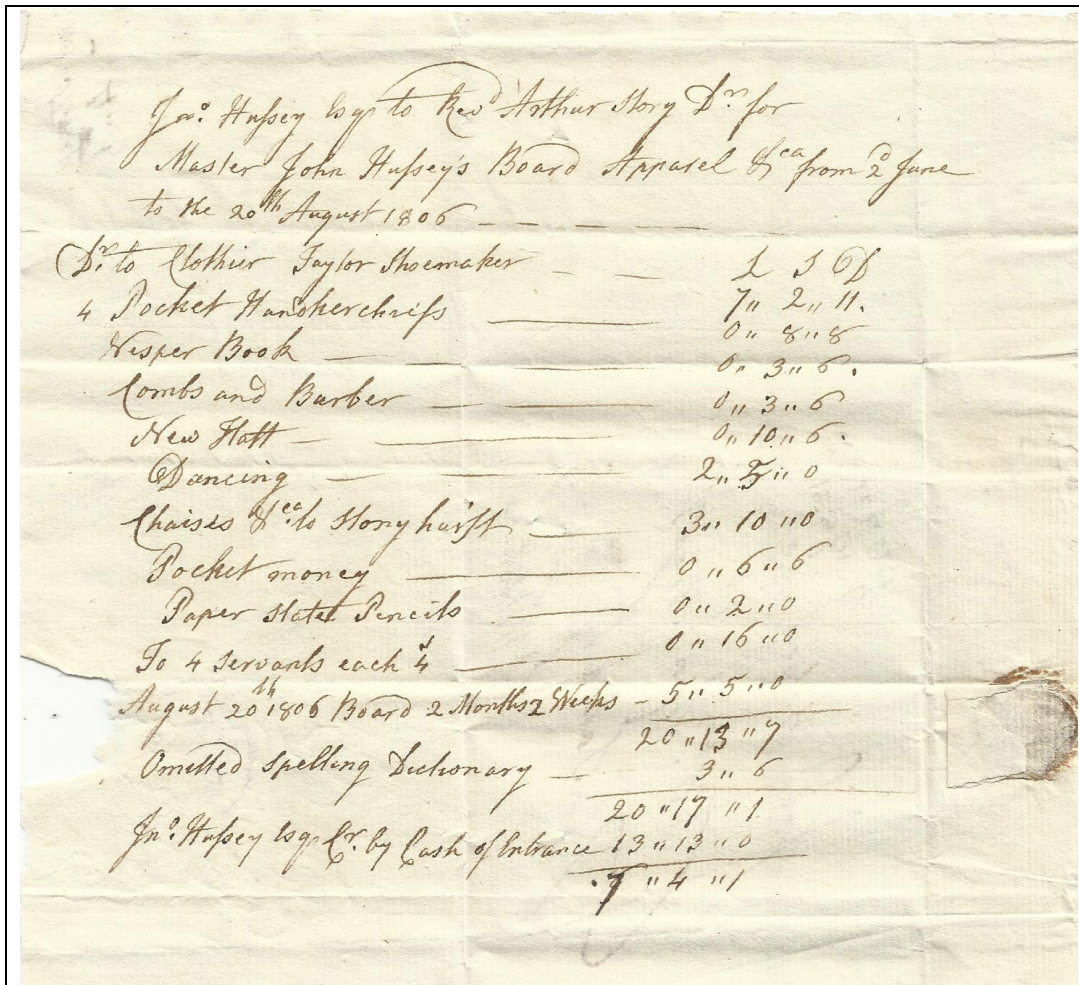 Jno. Hussey Esqr to Revd Arthur Story Dr. for
Master John Hussey's Board Apparel &ca from 2d June
to the 20th August 1806
Dr. to Clothier Taylor Shoemaker £ S D
7 " 2 " 11.
4 Pocket Handkerchifs 0 " 8 " 8
Vesper Book 0 " 3 " 6.
Combs and Barber 0 " 3 " 6
New Hatt 0 " 10 " 6.
Dancing 2 " 5 " 0
Chaises &ca. to Stony hurst 3 " 10 " 0
Pocket money 0 " 6 " 6
Paper Slate Pencils 0 " 2 " 0
To 4 Servants each 4s 0 " 16 " 0
August 20th 1806 Board 2 Months 2 Weeks 5 " 5 " 0
20 " 13 " 7
Omitted Spelling Dictionary 3 " 6
20 " 17 " 1
Jno. Hussey Esqr Cr. by Cash of Entrance 13 " 13 " 0
7 " 4 " 1